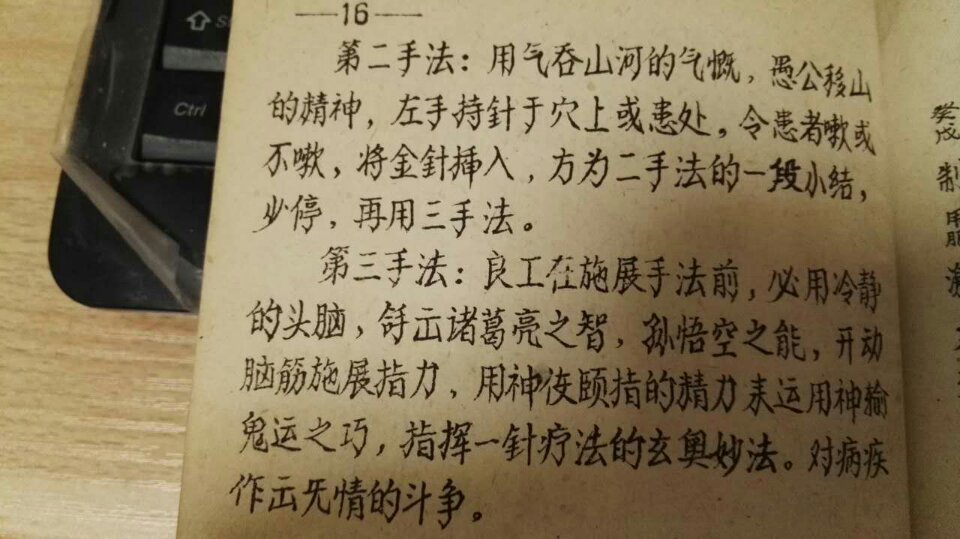 Ctrl
—16—
第二手法：用气吞山河的气慨，愚公移山
的精神，左手持針于穴上或患处。令患者嗽或
不嗽，将金針揷入，方为二手法的一段小结，
少停，再用三手法。
第三手法：良工在施展手法前，必用冷静
的头脑，舒出诸葛亮之智，孙悟空之能，开动
脑筋施展指力，用神使颐指的精力来运用神输
鬼运之巧，指挥一針疗法的玄奥妙法。对病疾
作出无情的斗争。